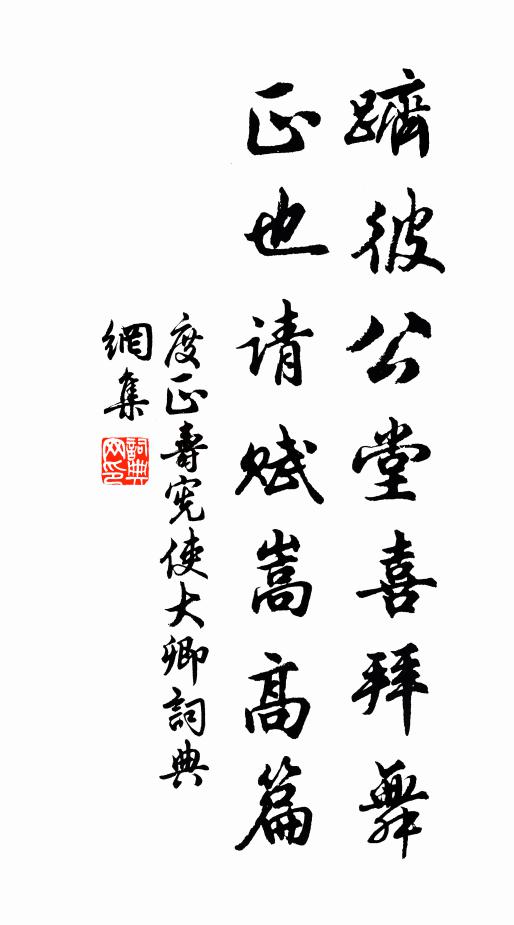 躋彼公堂喜拜舞
正也请赋嵩高篇
度正壽宪使大卿詞典
網集
詞典
网印